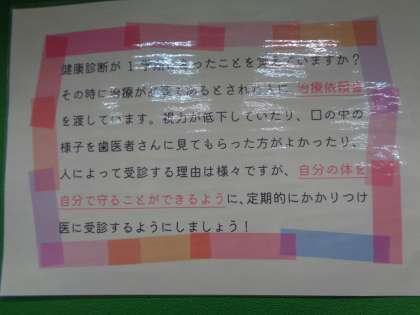 健康診断が１学期にあったことを覚えていますか？
その時に治療が必要であるとされた人に、治療依頼書
を渡しています。視力が低下していたり、口の中の
様子を歯医者さんに見てもらった方がよかったり、
人によって受診する理由は様々ですが、自分の体を
自分で守ることができるように、定期的にかかりつけ
医に受診するようにしましょう！